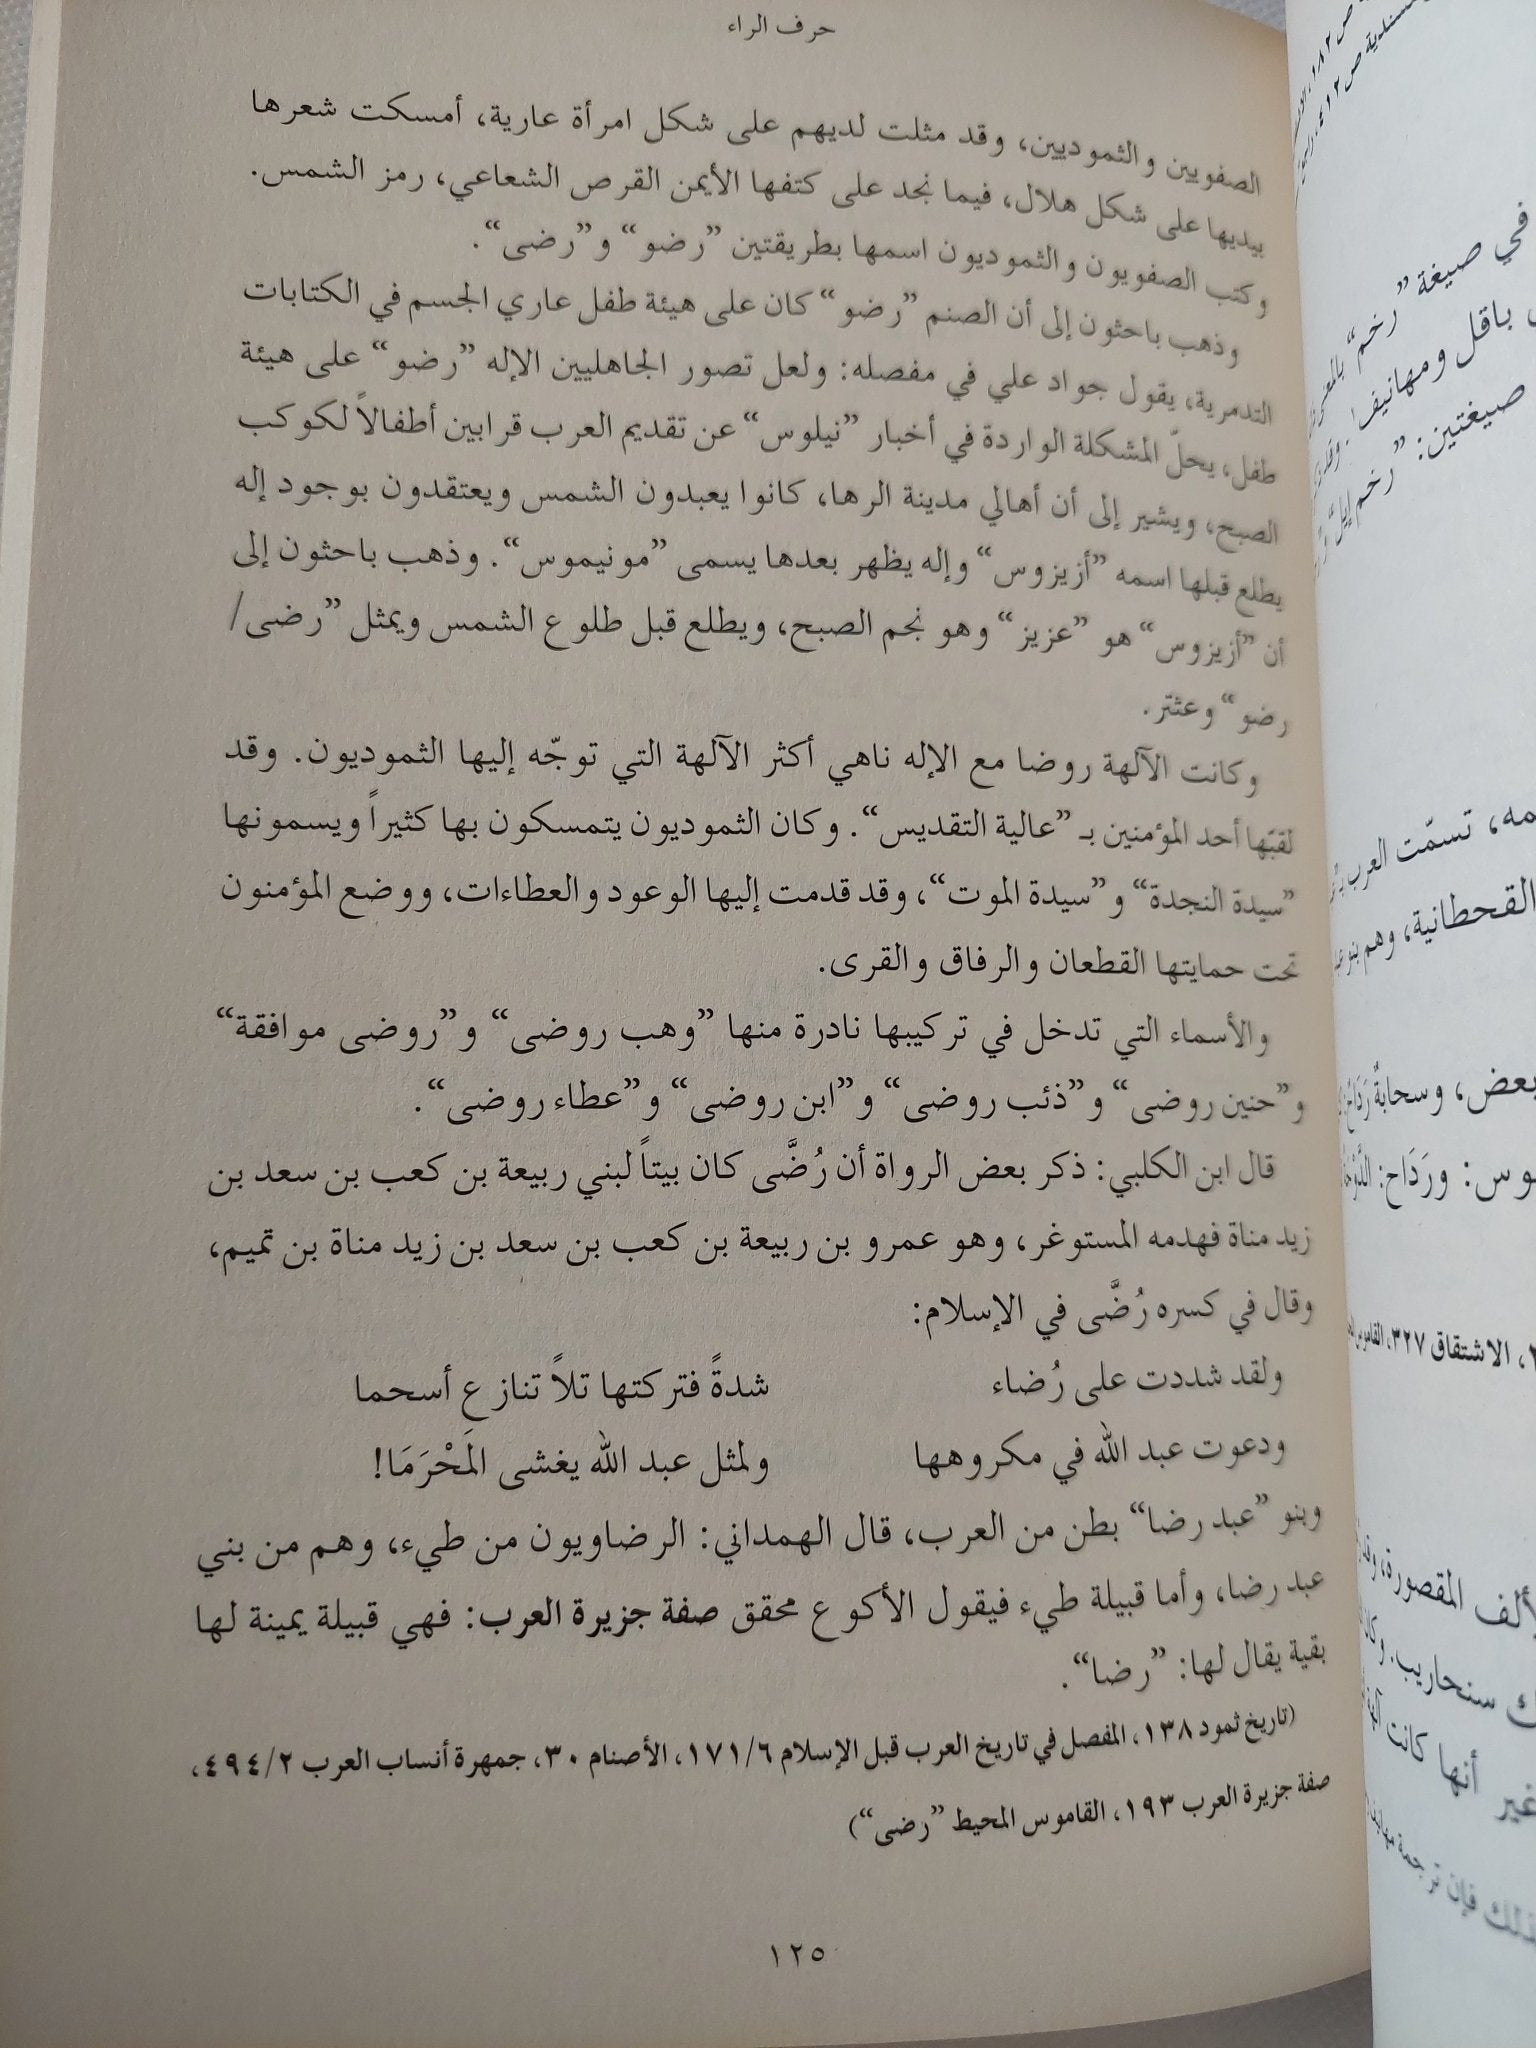 حرف الراء
الصفويين والثموديين، وقد مثلت لديهم على شكل امرأة عارية، أمسكت شعرها
بيديها على شكل هلال، فيما نجد على كتفها الأيمن القرص الشعاعي، رمز الشمس.
وكتب الصفويون والثموديون اسمها بطريقتين ”رضو“ و”رضى“.
وذهب باحثون إلى أن الصنم ”رضو“ كان على هيئة طفل عاري الجسم في الكتابات
التدمرية، يقول جواد علي في مفصله: ولعل تصور الجاهليين الإله ”رضو“ على هيئة
طفل، يحلّ المشكلة الواردة في أخبار ”نيلوس“ عن تقديم العرب قرابين أطفالاً لكوكب
الصبح، ويشير إلى أن أهالي مدينة الرها، كانوا يعبدون الشمس ويعتقدون بوجود إله
يطلع قبلها اسمه ”أزيزوس“ وإله يظهر بعدها يسمى ”مونيموس“. وذهب باحثون إلى
أن ”أزيزوس“ هو ”عزيز“ وهو نجم الصبح، ويطلع قبل طلوع الشمس ويمثل ”رضى/
رضو“ وعثتر.
وكانت الآلهة روضا مع الإله ناهي أكثر الآلهة التي توجّه إليها الثموديون. وقد
لقبّها أحد المؤمنين بـ ”عالية التقديس“. وكان الثموديون يتمسكون بها كثيراً ويسمونها
”سيدة النجدة“ و”سيدة الموت“، وقد قدمت إليها الوعود والعطاءات، ووضع المؤمنون
تحت حمايتها القطعان والرفاق والقرى.
والأسماء التي تدخل في تركيبها نادرة منها ”وهب روضى“ و”روضى موافقة“
و”حنين روضى“ و”ذئب روضى“ و”ابن روضى“ و”عطاء روضى“.
قال ابن الكلبي: ذكر بعض الرواة أن رُضَّى كان بيتاً لبني ربيعة بن كعب بن سعد بن
زيد مناة فهدمه المستوغر، وهو عمرو بن ربيعة بن كعب بن سعد بن زيد مناة بن تميم،
وقال في كسره رُضَّى في الإسلام:
ولقد شددت على رُضاء شدةً فتركتها تلاً تنازع أسحما
ودعوت عبد الله في مكروهها ولمثل عبد الله يغشى المَحْرَمَا!
وبنو ”عبد رضا“ بطن من العرب، قال الهمداني: الرضاويون من طيء، وهم من بني
عبد رضا، وأما قبيلة طيء فيقول الأكوع محقق صفة جزيرة العرب: فهي قبيلة يمينة لها
بقية يقال لها: ”رضا“.
(تاريخ ثمود ١٣٨، المفصل في تاريخ العرب قبل الإسلام ١٧١/٦، الأصنام ٣٠، جمهرة أنساب العرب ٤٩٤/٢،
صفة جزيرة العرب ١٩٣، القاموس المحيط ”رضى“)
١٢٥
في صيغة ”رخم“ بالمعنى
باقل ومهانيف
صيغتين: ”رخم إيل
تسمّت العرب
القحطانية، وهم بنو
بعض، وسحابةٌ
ورَدَاح:
الاشتقاق ٣٢٧، القاموس
المقصورة،
سنحاريب. وكان
غير أنها كانت
فإن ترجمة